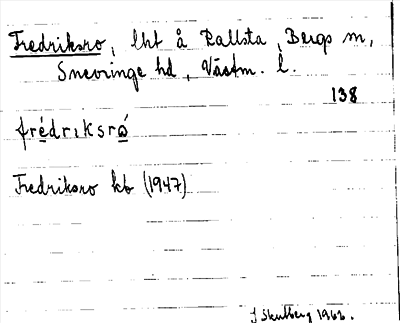 Fredriksro, lht å Rallsta, Bergs sn,
Snevringe hd, Västm. l.
138
frédriksró
Fredriksro kb (1947)
J Skulberg 1966.